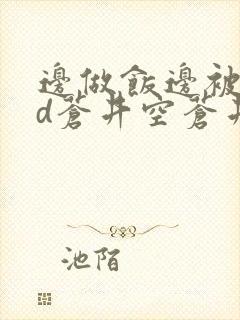 邊做飯邊被
d蒼井空蒼井
池陌